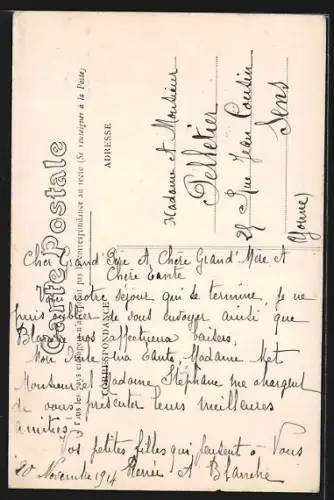 Carte Postale
Tous les pays étrangers n'acceptent pas la correspondance au recto (Se renseigner à la Poste)
CORRESPONDANCE
ADRESSE
Madame et Monsieur
Pelletier
Rue Jean Cousin
Sens
(Yonne)
Cher Grand Père et Chère Grand'Mère et
Chère Tante
notre séjour qui se termine, je ne
puis oublier de vous envoyer ainsi que
Blanche nos affectueux baisers,
Mon Oncle ma Tante, Madame et
Monsieur Madame Stéphane me chargent
de vous présenter leurs meilleures
amitiés
Vos petites filles qui pensent à Vous
Renée et Blanche
20 Novembre 1914